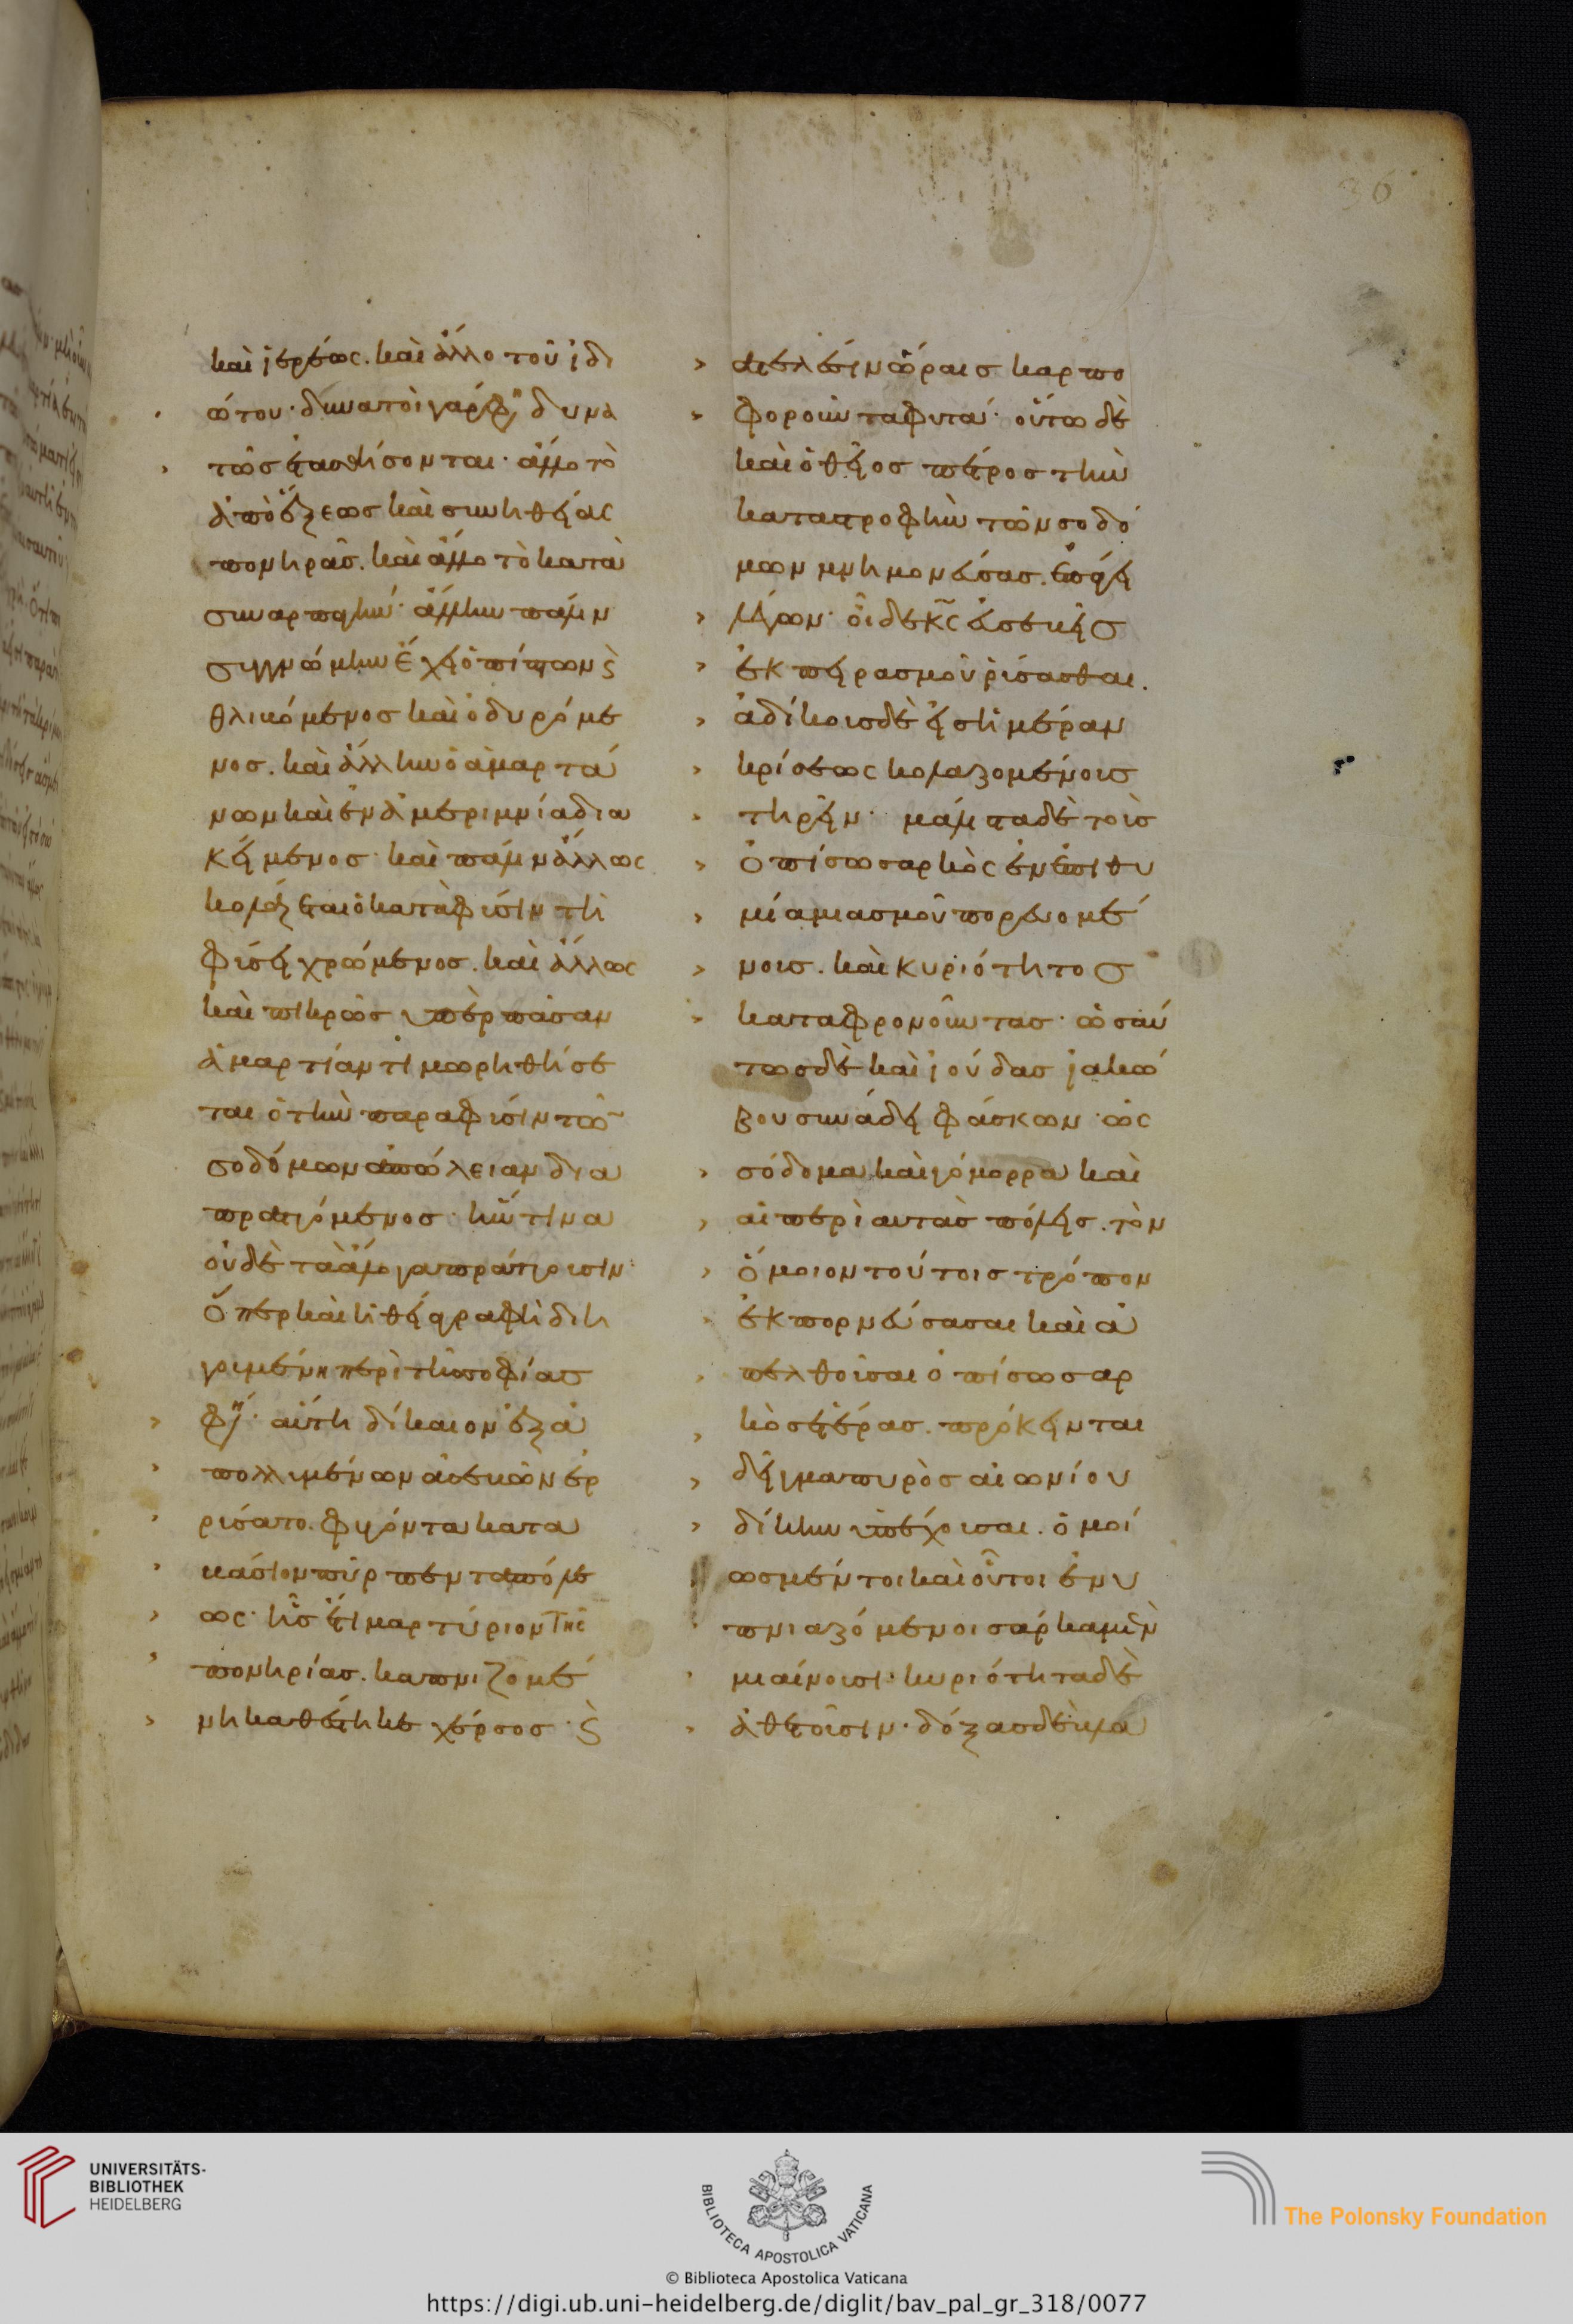 36
καὶ ἱερέως. καὶ ἄλλο τοῦ ἰδι
ώτου· δυνατοὶ γάρ φη δυνα
τῶς ἐτασθήσονται· ἄλλο τὸ
ἀπὸ ἕξεως καὶ συνηθείας
πονηρᾶς. καὶ ἄλλο τὸ κατὰ
συναρπαγήν· ἄλλην πάλιν
συγγνώμην ἔχει ὁ πίπτων ϛ
θλιβόμενος καὶ ὀδυρόμε
νος. καὶ ἄλλην ὁ ἁμαρτά
νων καὶ ἐν ἀμεριμνία δια
κείμενος· καὶ πάλιν ἄλλως
κολάζεται ὁ κατὰ φύσιν τῆ
φύσει χρώμενος. καὶ ἄλλως
καὶ πικρῶς ὑπὲρ πᾶσαν
ἁμαρτίαν τιμωρηθήσε
ται ὁ τὴν παρὰ φύσιν τῶ
σοδόμων ἀπώλειαν δια
πραττόμενος· ἥντινα
οὐδὲ τὰ ἄλογα πράττουσιν·
ὅπερ καὶ ἡ θεία γραφὴ διη
γουμένη περὶ τῆς σοφίας
φη· αὕτη δίκαιον ἐξ ἀ
πολλυμένων ἀσεβῶν ἐρ
ρύσατο. φυγόντα κατα
βάσιον πῦρ πενταπόλε
ως· ἧς ἔτι μαρτύριον τῆς
πονηρίας. καπνιζομέ
νη καθέστηκε χέρσος· ϛ
ἀτελέσιν ὥραις καρπο
φοροῦντα φυτά· οὕτω δὲ
καὶ ὁ θεῖος πέτρος τὴν
καταστροφὴν τῶν σοδό
μων μνημονεύσας. ἐπάγει
λέγων· οἶδε κς εὐσεβεῖς
ἐκ πειρασμοῦ ῥύσασθαι.
ἀδίκους δὲ εἰς ἡμέραν
κρίσεως κολαζομένους
τηρεῖν· μάλιστα δὲ τοὺς
ὀπίσω σαρκὸς ἐν ἐπιθυ
μία μιασμοῦ πορευομέ
νους. καὶ κυριότητος
καταφρονοῦντας· ὡσαύ
τως δὲ καὶ ἰούδας ἰακώ
βου συνάδει φάσκων· ὡς
σόδομα καὶ γόμορρα καὶ
αἱ περὶ αυτὰς πόλεις. τὸν
ὅμοιον τούτοις τρόπον
ἐκπορνεύσασαι καὶ ἀ
πελθοῦσαι ὀπίσω σαρ
κὸς ἑτέρας. πρόκεινται
δεῖγμα πυρὸς αἰωνίου
δίκην ὑπέχουσαι. ὁμοί
ως μέντοι καὶ οὗτοι ἐνυ
πνιαζόμενοι σάρκα μὲν
μιαίνουσι· κυριότητα δὲ
ἀθετοῦσιν· δόξας δὲ βλα
UNIVERSITÄTS-
BIBLIOTHEK
HEIDELBERG
BIBLIOTECA APOSTOLICA VATICANA
© Biblioteca Apostolica Vaticana
The Polonsky Foundation
https://digi.ub.uni-heidelberg.de/diglit/bav_pal_gr_318/0077